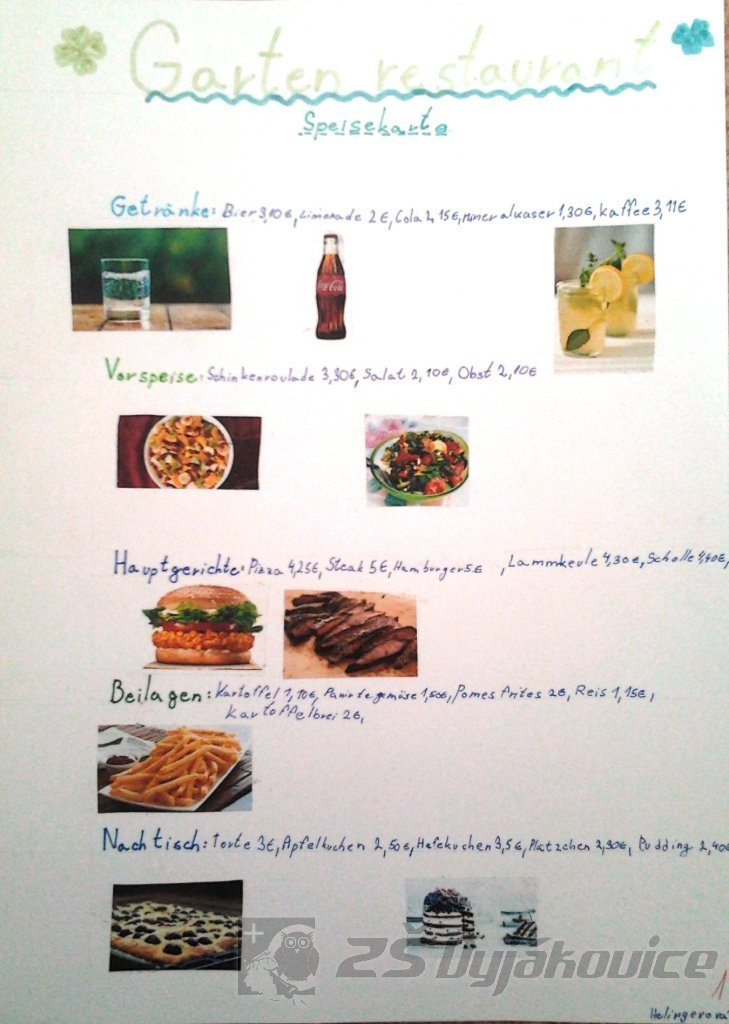 Garten restaurant
Speisekarte
Getränke: Bier 3,10€, Limonade 2€, Cola 2,15€, Mineralwaser 1,30€, kaffee 3,11€
Coca-Cola
Vorspeise: Schinkenroulade 3,30€, Salat 2,10€, Obst 2,10€
Hauptgerichte: Pizza 4,25€, Steak 5€, Hamburger 5€, Lammkeule 4,30€, Scholle 9,40€,
Beilagen: Kartoffel 1,10€, Panirtegemüse 1,50€, Pomes frites 2€, Reis 1,15€,
Kartoffelbrei 2€,
Nachtisch: Torte 3€, Apfelkuchen 2,50€, Hefekuchen 3,5€, Plätzchen 2,90€, Pudding 2,40€
ZŠ Vyjákovice
1
Holingerová